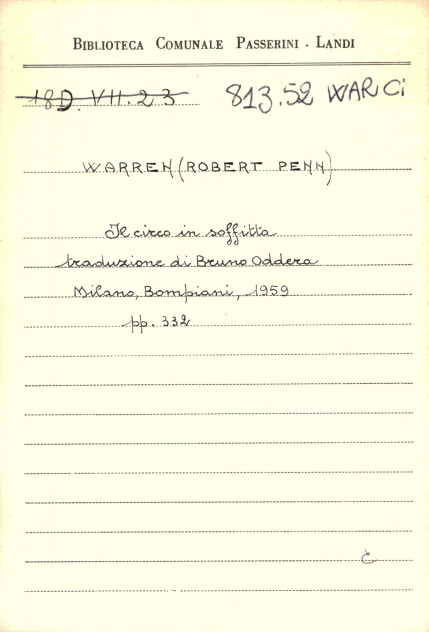 BIBLIOTECA COMUNALE PASSERINI - LANDI
18D.VII.23 813.52 WAR Ci
WARREN (ROBERT PENN)
Il circo in soffitta
traduzione di Bruno Oddera
Milano, Bompiani, 1959
pp. 332